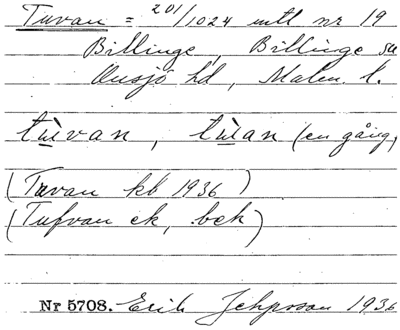 Tuvan = 20/1024 mtl nr 19
Billinge, Billinge sn
Onsjö hd, Malm. l.
tùvan, tùan (en gång)
(Tuvan kb 1936)
(Tufvan ek, bek)
Nr 5708. Erik Jeppsson 1936